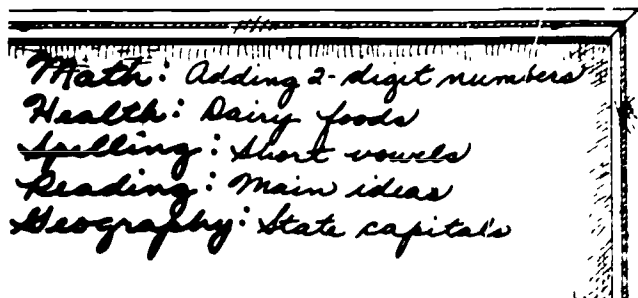 Math: Adding 2-digit numbers
Health: Dairy foods
Spelling: Short vowels
Reading: Main ideas
Geography: State capitals